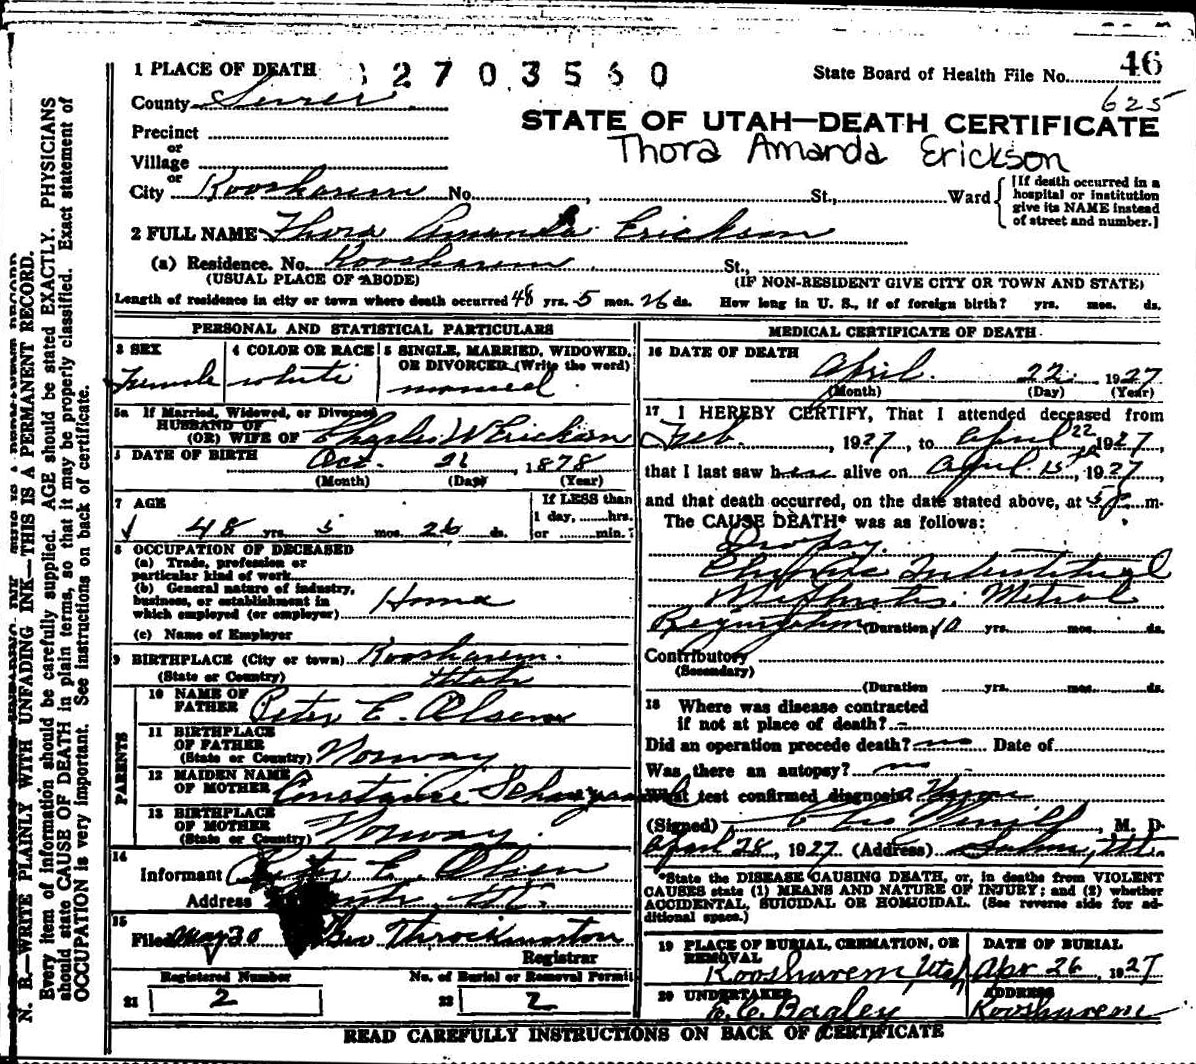 46
1 PLACE OF DEATH 2703560 State Board of Health File No.
625
County Sevier
STATE OF UTAH—DEATH CERTIFICATE
Precinct
or
Thora Amanda Erickson
Village
or
City Koosharem No. St., Ward
[If death occurred in a hospital or institution give its NAME instead of street and number.]
2 FULL NAME Thora Amanda Erickson
(a) Residence. No. Koosharem St.,
(USUAL PLACE OF ABODE) (IF NON-RESIDENT GIVE CITY OR TOWN AND STATE)
Length of residence in city or town where death occurred 48 yrs. 5 mos. 26 ds. How long in U. S., if of foreign birth? yrs. mos. ds.
PERSONAL AND STATISTICAL PARTICULARS
3 SEX
Female
4 COLOR OR RACE
white
5 SINGLE, MARRIED, WIDOWED,
OR DIVORCED (Write the word)
married
5a If Married, Widowed, or Divorced
HUSBAND OF
(OR) WIFE OF Charles W Erickson
DATE OF BIRTH Oct. 26, 1878
(Month) (Day) (Year)
7 AGE
48 yrs. 5 mos. 26 ds.
If LESS than
1 day, hrs.
or min.
8 OCCUPATION OF DECEASED
(a) Trade, profession or
particular kind of work
(b) General nature of industry,
business, or establishment in
which employed (or employer) Home
(c) Name of Employer
9 BIRTHPLACE (City or town) Koosharem.
(State or Country) Utah
PARENTS
10 NAME OF
FATHER Peter E. Olsen
11 BIRTHPLACE
OF FATHER
(State or Country) Norway
12 MAIDEN NAME
OF MOTHER Constance
13 BIRTHPLACE
OF MOTHER
(State or Country) Norway.
14
Informant Peter E. Olsen
Address Ut.
15
Filed May 30 Geo Throckmorton
Registrar
Registered Number No. of Burial or Removal Permit
21 2 22 2
MEDICAL CERTIFICATE OF DEATH
16 DATE OF DEATH
April 22 1927
(Month) (Day) (Year)
17 I HEREBY CERTIFY, That I attended deceased from
Feb. , 1927, to April 22 1927,
that I last saw her alive on April 15th, 1927
and that death occurred, on the date stated above, at 5 p. m.
The CAUSE DEATH* was as follows:
Dropsy.
Chronic Interstitial
Nephritis. Mitral
Regurgitation (Duration 10 yrs. mos. ds.
Contributory
(Secondary)
(Duration yrs. mos. ds.
18 Where was disease contracted
if not at place of death? -
Did an operation precede death? no Date of
Was there an autopsy? no
What test confirmed diagnosis?
(Signed) , M. D.
April 28, 1927 (Address) Salina, Ut.
*State the DISEASE CAUSING DEATH, or, in deaths from VIOLENT
CAUSES state (1) MEANS AND NATURE OF INJURY; and (2) whether
ACCIDENTAL, SUICIDAL OR HOMICIDAL. (See reverse side for ad-
ditional space.)
19 PLACE OF BURIAL, CREMATION, OR
REMOVAL
Koosharem, Utah
DATE OF BURIAL
Apr 26, 1927
20 UNDERTAKER
E. C. Bagley
ADDRESS
Koosharem
READ CAREFULLY INSTRUCTIONS ON BACK OF CERTIFICATE
N. B.—WRITE PLAINLY WITH UNFADING INK—THIS IS A PERMANENT RECORD.
Every item of information should be carefully supplied. AGE should be stated EXACTLY. PHYSICIANS
should state CAUSE OF DEATH in plain terms, so that it may be properly classified. Exact statement of
OCCUPATION is very important. See instructions on back of certificate.